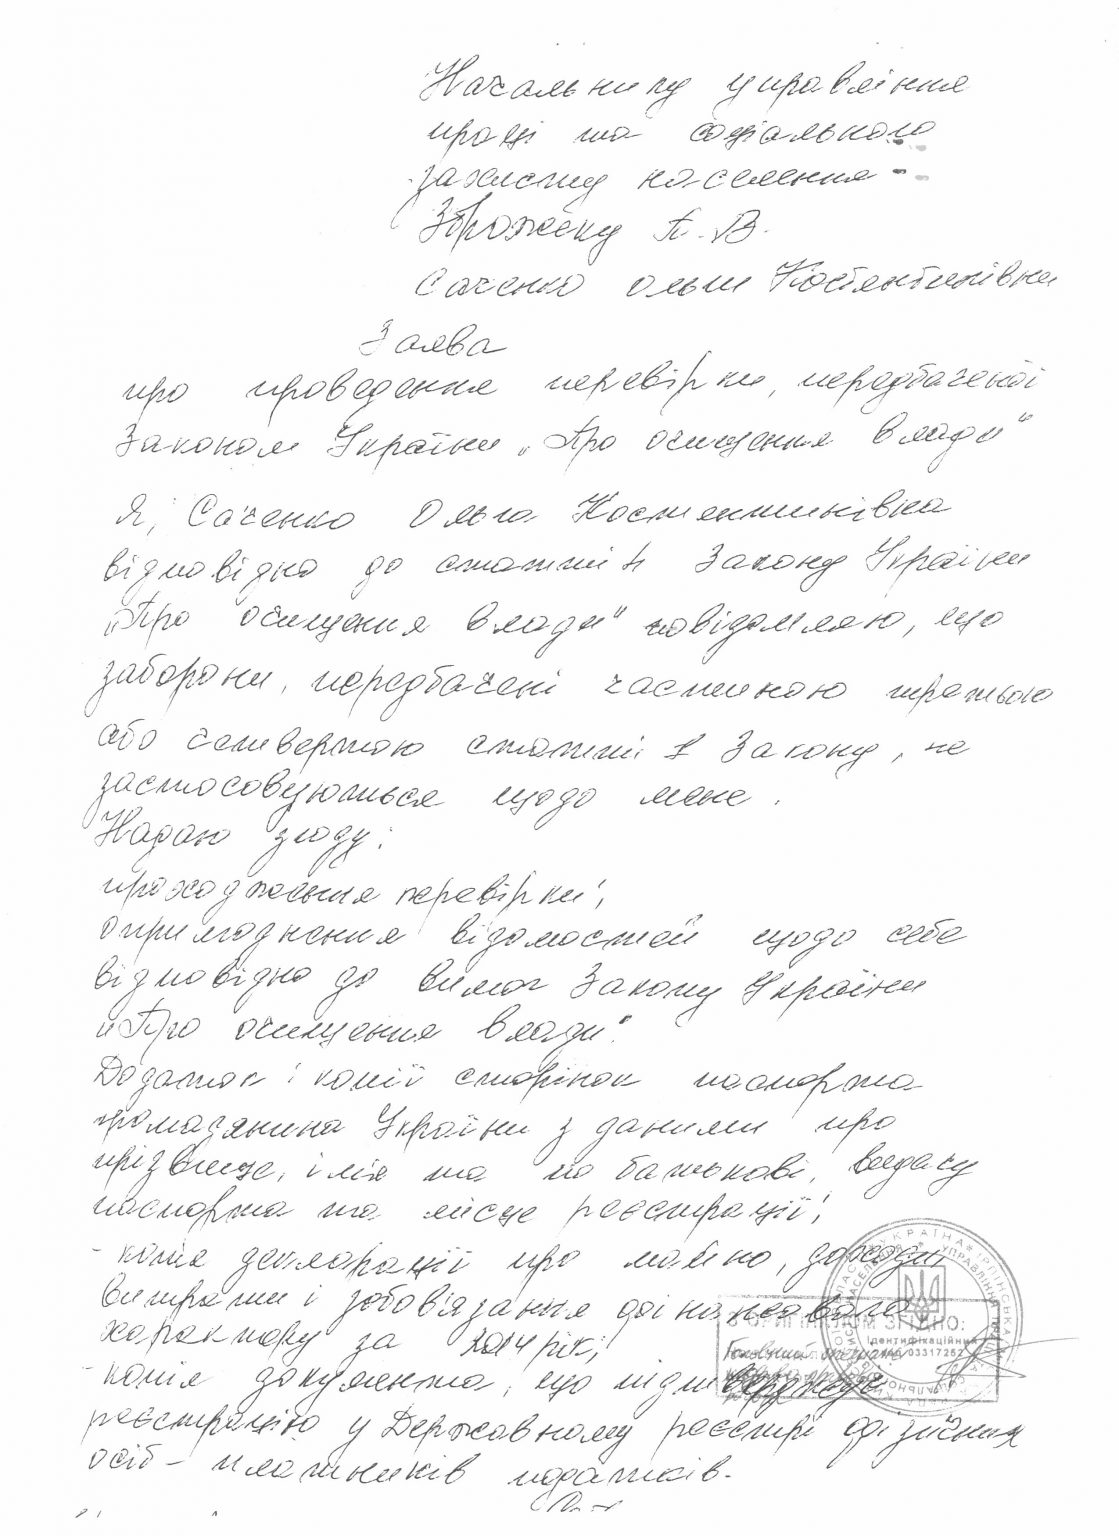 Начальнику управління
праці та соціального
захисту населення
Збражеку А. В.
Саченко Ольги Костянтинівни
Заява
про проведення перевірки, передбаченої
Законом України „Про очищення влади"
Я, Саченко Ольга Костянтинівна
відповідно до статті 4 Закону України
„Про очищення влади" повідомляю, що
заборони, передбачені частиною третьою
або четвертою статті 1 Закону, не
застосовуються щодо мене.
Надаю згоду:
проходження перевірки;
оприлюднення відомостей щодо себе
відповідно до вимог Закону України
„Про очищення влади".
Додаток: копії сторінок паспорта
громадянина України з даними про
прізвище, імя та по батькові, видачу
паспорта та місце реєстрації;
- копія декларації про майно, доходи,
витрати і зобов'язання фінансового
характеру за 2014 рік;
- копія документа, що підтверджує
реєстрацію у Державному реєстрі фізичних
осіб - платників податків.
З ОРИГІНАЛОМ ЗГІДНО:
Ідентифікаційний
код 03317252
УКРАЇНА